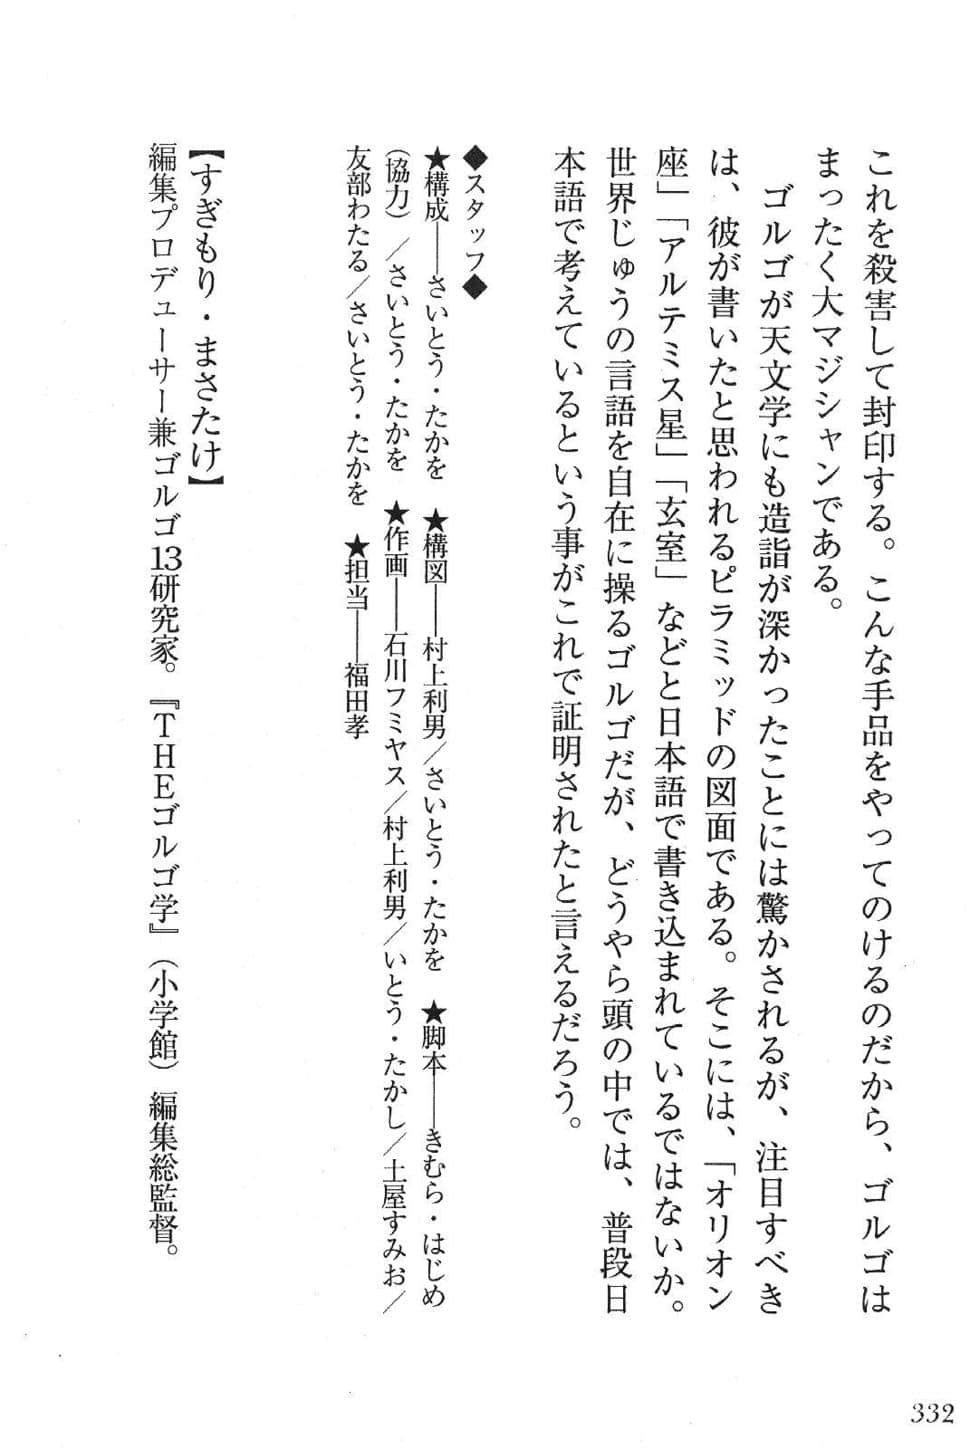 これを殺害して封印する。こんな手品をやってのけるのだから、ゴルゴは
まったく大マジシャンである。
ゴルゴが天文学にも造詣が深かったことには驚かされるが、注目すべき
は、彼が書いたと思われるピラミッドの図面である。そこには、「オリオン
座」「アルテミス星」「玄室」などと日本語で書き込まれているではないか。
世界じゅうの言語を自在に操るゴルゴだが、どうやら頭の中では、普段日
本語で考えているという事がこれで証明されたと言えるだろう。
◆スタッフ◆
★構成――さいとう・たかを ★構図――村上利男／さいとう・たかを ★脚本――きむら・はじめ
（協力）／さいとう・たかを ★作画――石川フミヤス／村上利男／いとう・たかし／土屋すみお／
友部わたる／さいとう・たかを ★担当――福田孝
【すぎもり・まさたけ】
編集プロデューサー兼ゴルゴ13研究家。『THEゴルゴ学』（小学館）編集総監督。
332